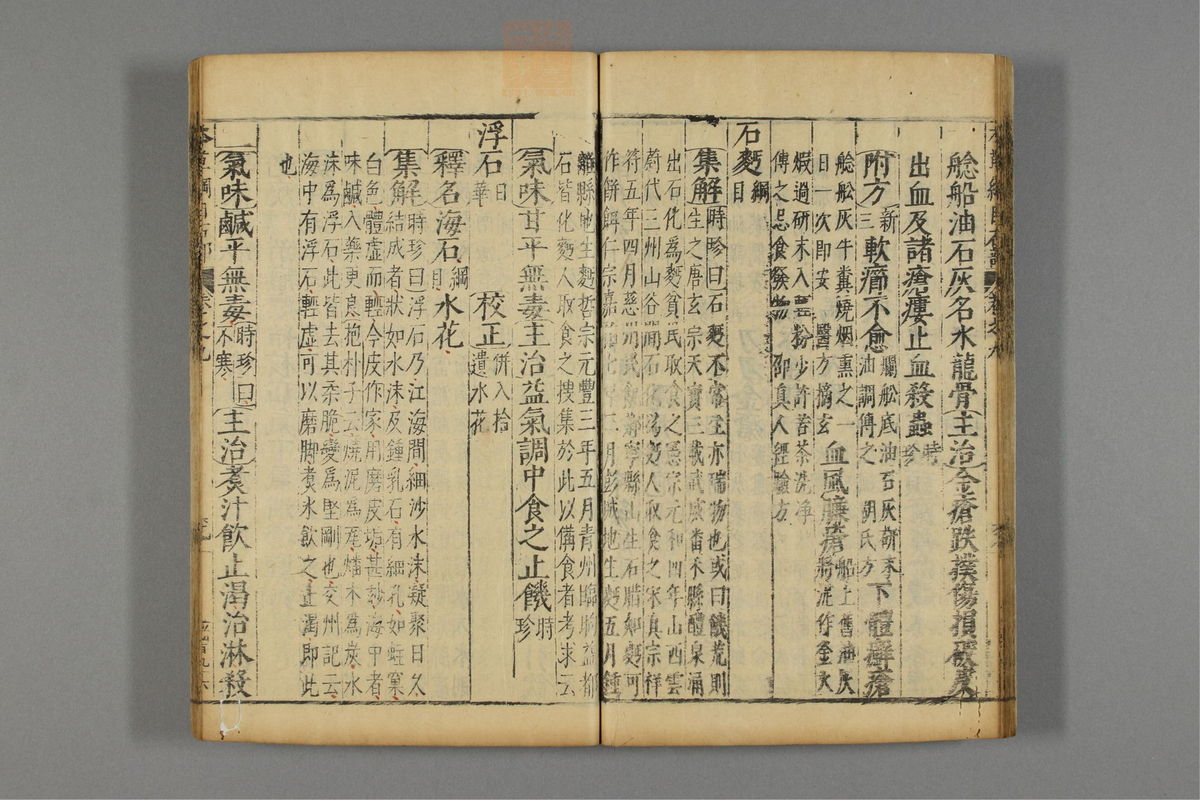 艌船油石灰名水龍骨主治金瘡跌撲傷損破皮
出血及諸瘡瘻止血殺蟲時珍
附方新三軟癤不愈爛船底油石灰研末油調傅之胡氏方下體癬瘡
艌船灰牛糞燒烟熏之一日一次即安醫方摘玄血風臁瘡船上舊油灰將泥作釜火
煆過研末入輕粉少許苦茶洗淨傅之忌食發物邵真人經驗方
石麪綱目
集解時珍曰石麪不常生亦瑞物也或曰饑荒則
生之唐玄宗天寶三載武威番禾縣醴泉涌
出石化為麪貧民取食之憲宗元和四年山西雲
蔚代三州山谷間石化為麪人取食之宋真宗祥
符五年四月慈州民飢鄉寧縣山生石脂如麪可
作餅餌仁宗嘉祐七年三月彭城地生麪五月鍾
離縣地生麪哲宗元豐三年五月青州臨朐益都
石皆化麪人取食之搜集於此以備食者考求云
氣味甘平無毒主治益氣調中食之止饑時珍
浮石日華校正併入拾遺水花
釋名海石綱目水花
集解時珍曰浮石乃江海間細沙水沫凝聚日久
結成者狀如水沫及鍾乳石有細孔如蛀窠
白色體虛而輕今皮作家用磨皮垢甚妙海中者
味鹹入藥更良抱朴子云燒泥為瓦燔木為炭水
沫為浮石此皆去其柔脆變為堅剛也交州記云
海中有浮石輕虛可以磨脚煮水飲之止渴即此
也
氣味鹹平無毒時珍曰不寒主治煮汁飲止渴治淋殺